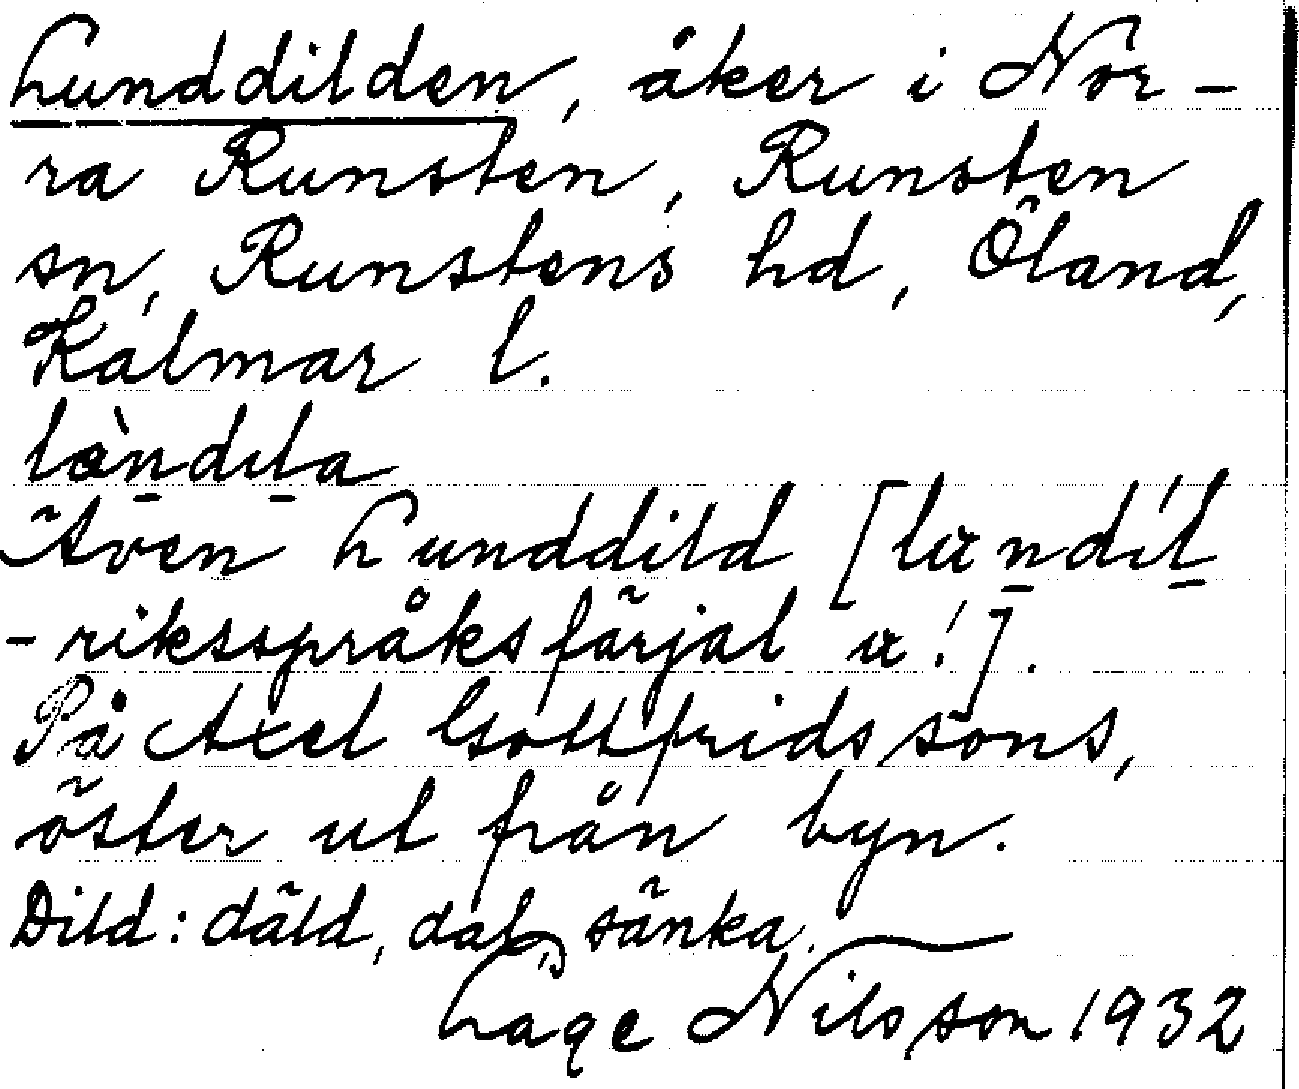 Lunddilden, åker i Nor-
ra Runsten, Runsten
sn, Runstens hd, Öland,
Kalmar l.
Även Lunddild [
-riksspråksfärjal !].
På Axel Gottfridssons,
öster ut från byn.
Dild: däld, dal, sänka.
Lage Nilsson 1932